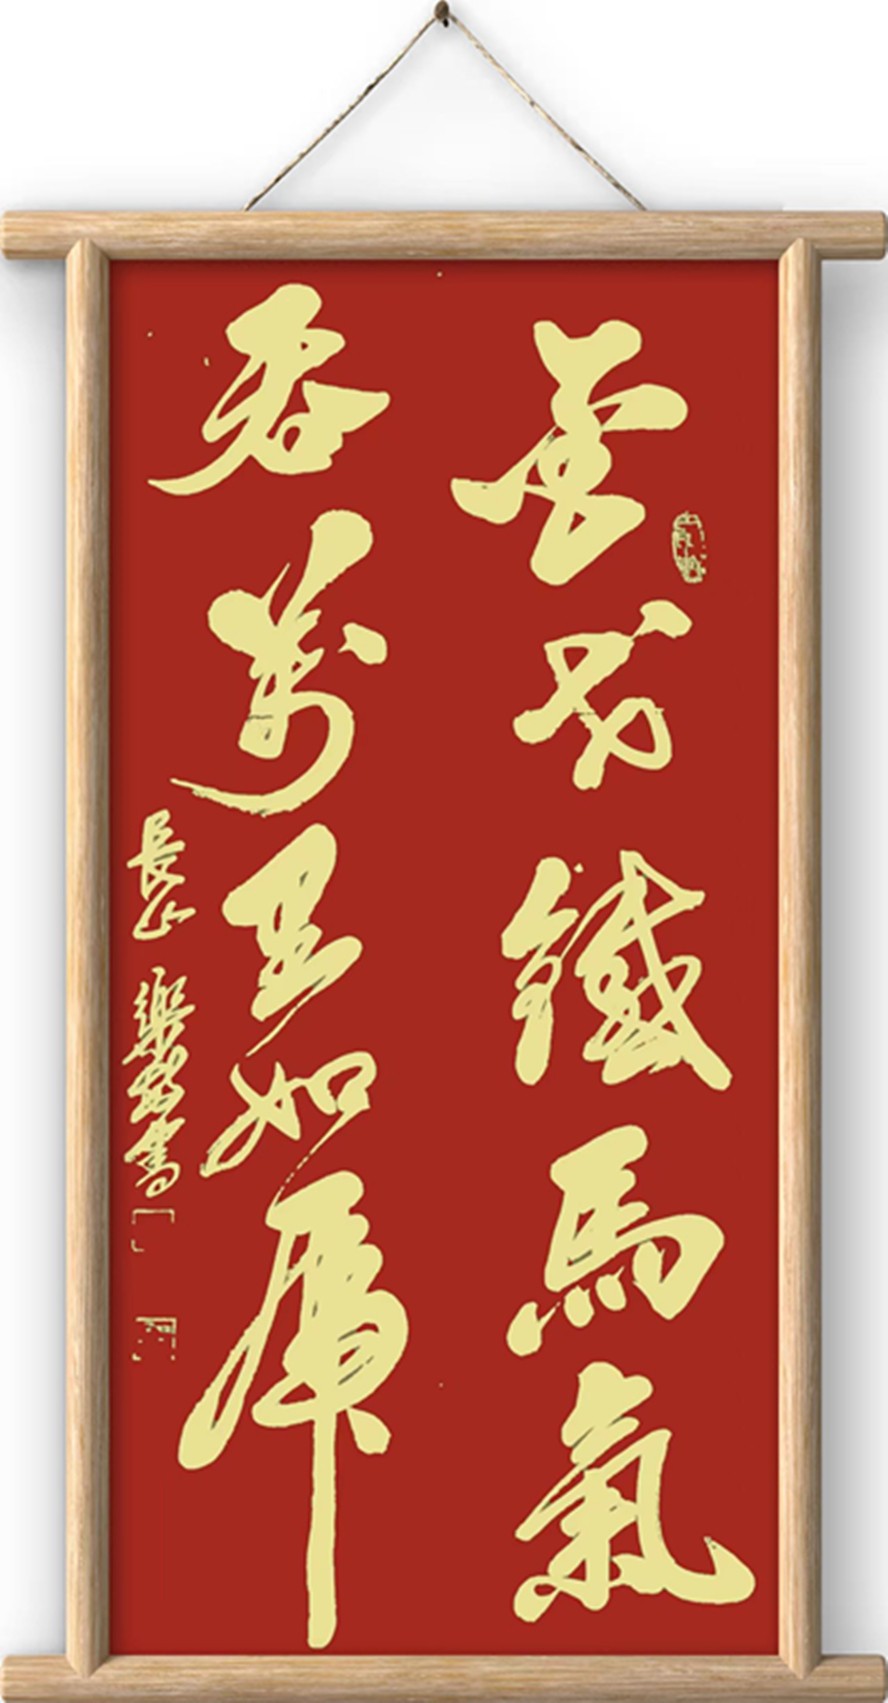 金戈鐵馬氣
吞萬里如虎
長山 書